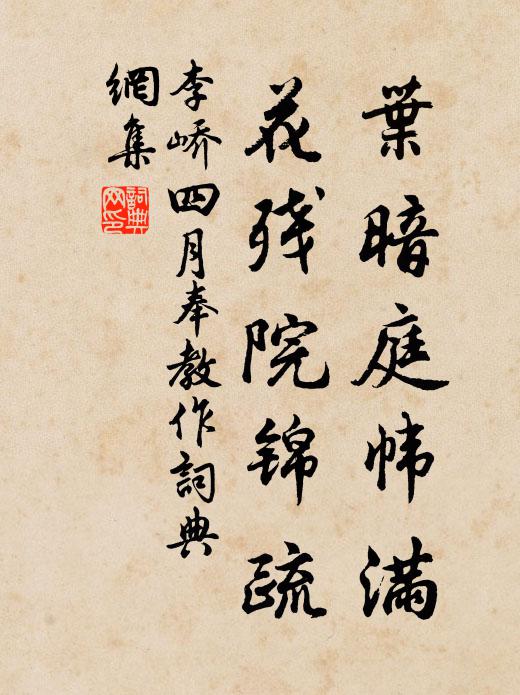 葉暗庭帏满
花残院锦疏
李峤四月奉教作詞典
網集
詞典網印